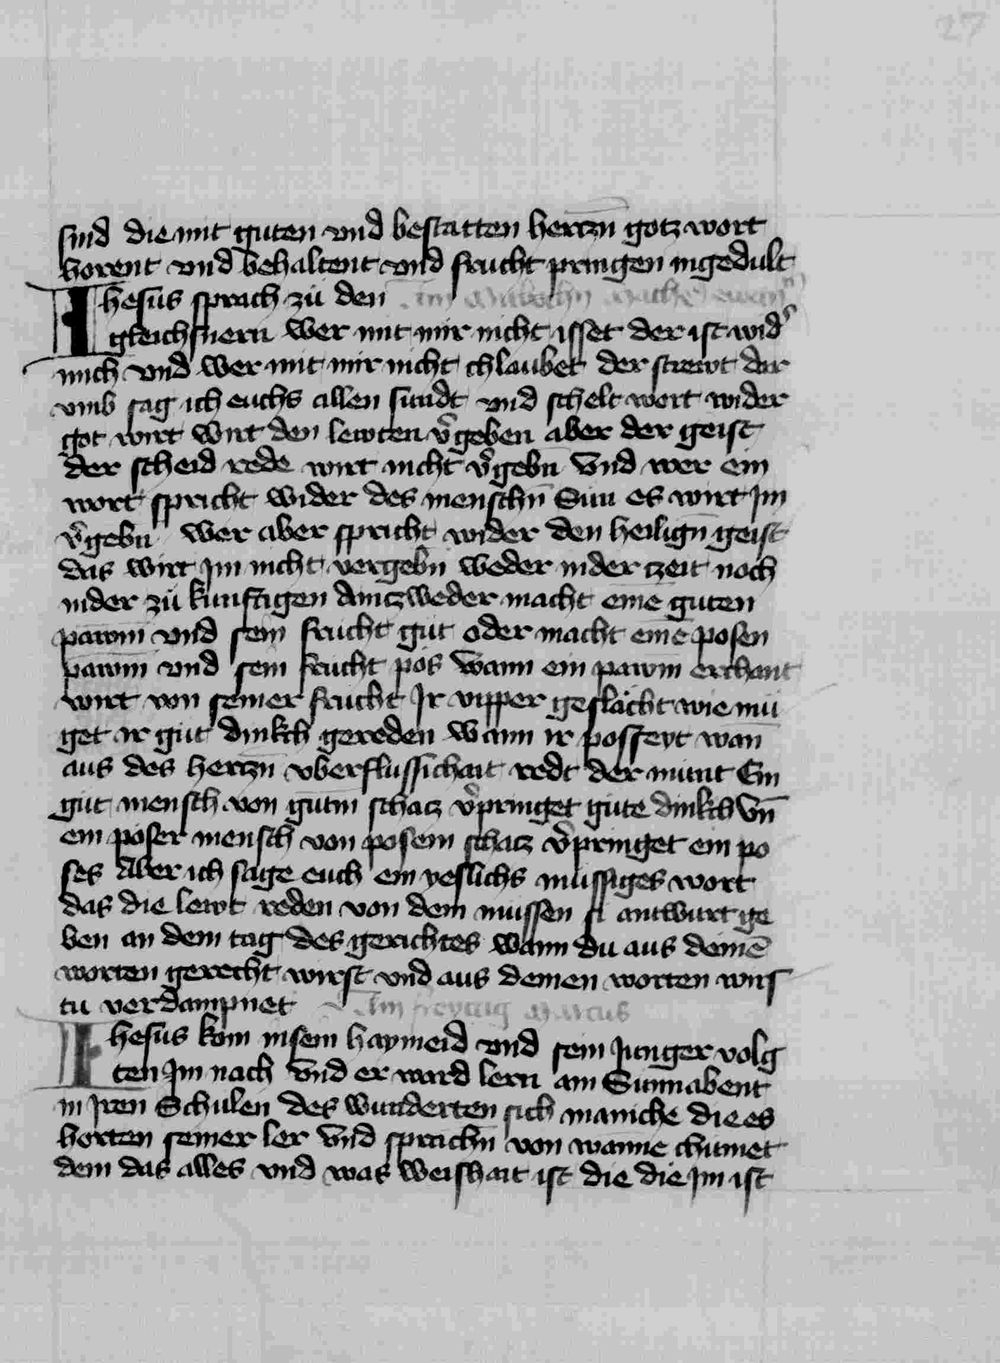 27
sind die mit guten vnd bestatten herczn̄ gotz wort
horent vnd behaltent vnd frucht pringen in gedult
Ihesus sprach zů den Im Mitbochn̄ Mathe ewan
gleichsnern wer mit mir nicht isset der ist wid̉
mich vnd wer mit mir nicht chlaubet der strewt dar
vmb sag ich euchs allen sundt vnd schelt wort wider
got wirt wirt den lewten v̉geben aber der geist
der scheid rede wirt nicht v̉gebn̄ vnd wer ein
wort spricht wider des menschn̄ Sun es wirt Im
v̉gebn wer aber spricht wider den heilign̄ geist
das wirt Im nicht vergebn̄ weder in der zeit noch
in der zů kunftigen Aintzweder macht eine guten
pawm vnd sein frucht gut oder macht eine posen
pawm vnd sein frucht pos wann ein pawm erchant
wirt von seiner frucht Ir vipper geslächt wie mü
get ir gut dinkch gereden wann ir pos seyt wan̄
aus des herczn̄ vberflussichait redt der munt Ein
gut mensch von gutm̄ schatz v̉pringet gute dinkch vn̄
ein poser mensch von posem schatz v̉pringet ein po
ses Aber ich sage euch ein yeslichs mussiges wort
das die lewt reden von dem mussen si antwurt ge
ben an dem tag des gerichtes wann du aus deinē
worten gerecht wirst vnd aus deinen worten wirs
tu verdampnet Am freytag Marcus
Ihesus kom in sein haymeid vnd sein Junger volg
ten Im nach vnd er ward lern am Sunnabent
in Iren Schulen des wunderten sich maniche die es
horten seiner ler vnd sprachn̄ von wanne chumet
dem das alles vnd was weishait ist die die Im ist